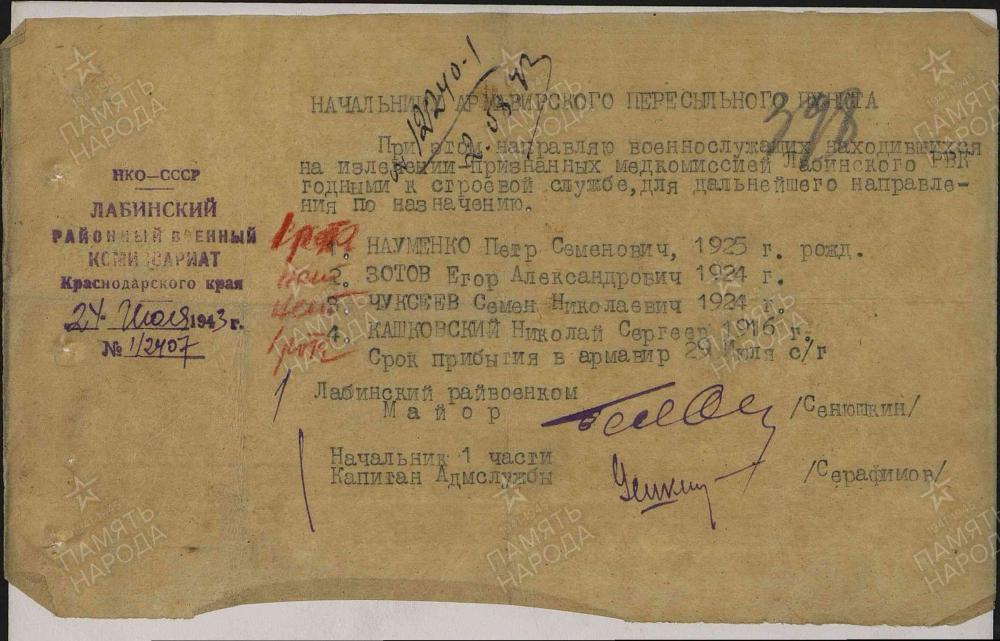 НАЧАЛЬНИКУ АРМАВИРСКОГО ПЕРЕСЫЛЬНОГО ПУНКТА
398
При этом направляю военнослужащих находившихся
на излечении признанных медкомиссией Лабинского РВК
годными к строевой службе, для дальнейшего направле-
ния по назначению.
НКО—СССР
ЛАБИНСКИЙ
РАЙОННЫЙ ВОЕННЫЙ
КОМИССАРИАТ
Краснодарского края
24 Июля 1943 г.
№ 1/2407
1 рота
1. НАУМЕНКО Петр Семенович, 1925 г. рожд.
2. ЗОТОВ Егор Александрович 1924 г.
3. ЧУКСЕЕВ Семен Николаевич 1924 г.
1 рота
4. КАШКОВСКИЙ Николай Сергеев 1916 г.
Срок прибытия в армавир 29 Июля с/г
Лабинский райвоенком
Майор /Сенюшкин/
Начальник 1 части
Капитан Адмслужбы /Серафимов/
ПАМЯТЬ
НАРОДА